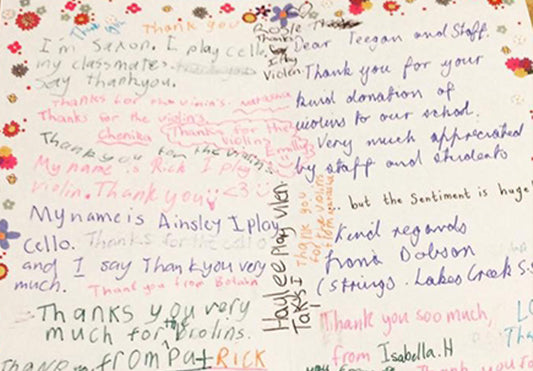 Thank you
Thank you
I'm Saxon. I play cello.
my classmates.
Say thankyou.
Thanks for the violins. natasha
Thanks for the violins.
Chenika
Thanks for the
violin
Emily
Thank you for the violins
My name is Rick I play
violin. Thank you <3
My name is Ainsley I play
Cello. Thanks for the cello
and I say Thankyou very
much.
Thank you from
Thanks you very
much for the
violins.
from Pat RICK
Rosie
Thanks
I Play
Violen.
Haylee play vilen
Taks I
Thank you
for the violins
from
Dear Teegan and Staff.
Thank you for your
kind donation of
violins to our school.
Very much appreciated
by staff and students
.. but the Sentiment is huge!
Kind regards
Fiona Dobson
(Strings - Lakes Creek S.S
Thank you soo much,
from Isabella.H